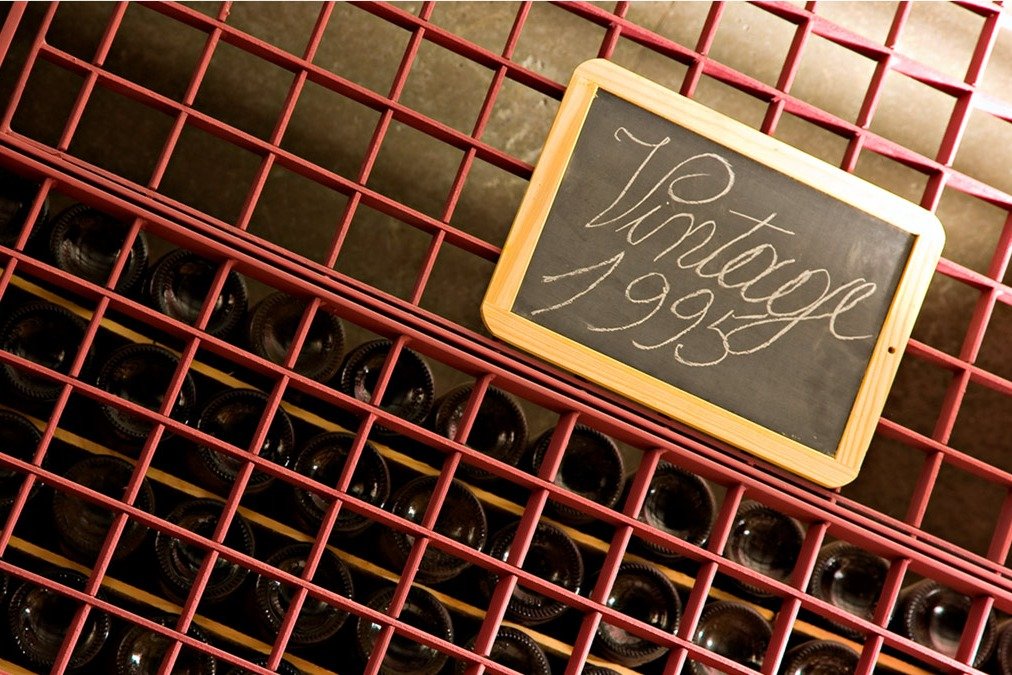 Vintage
1995